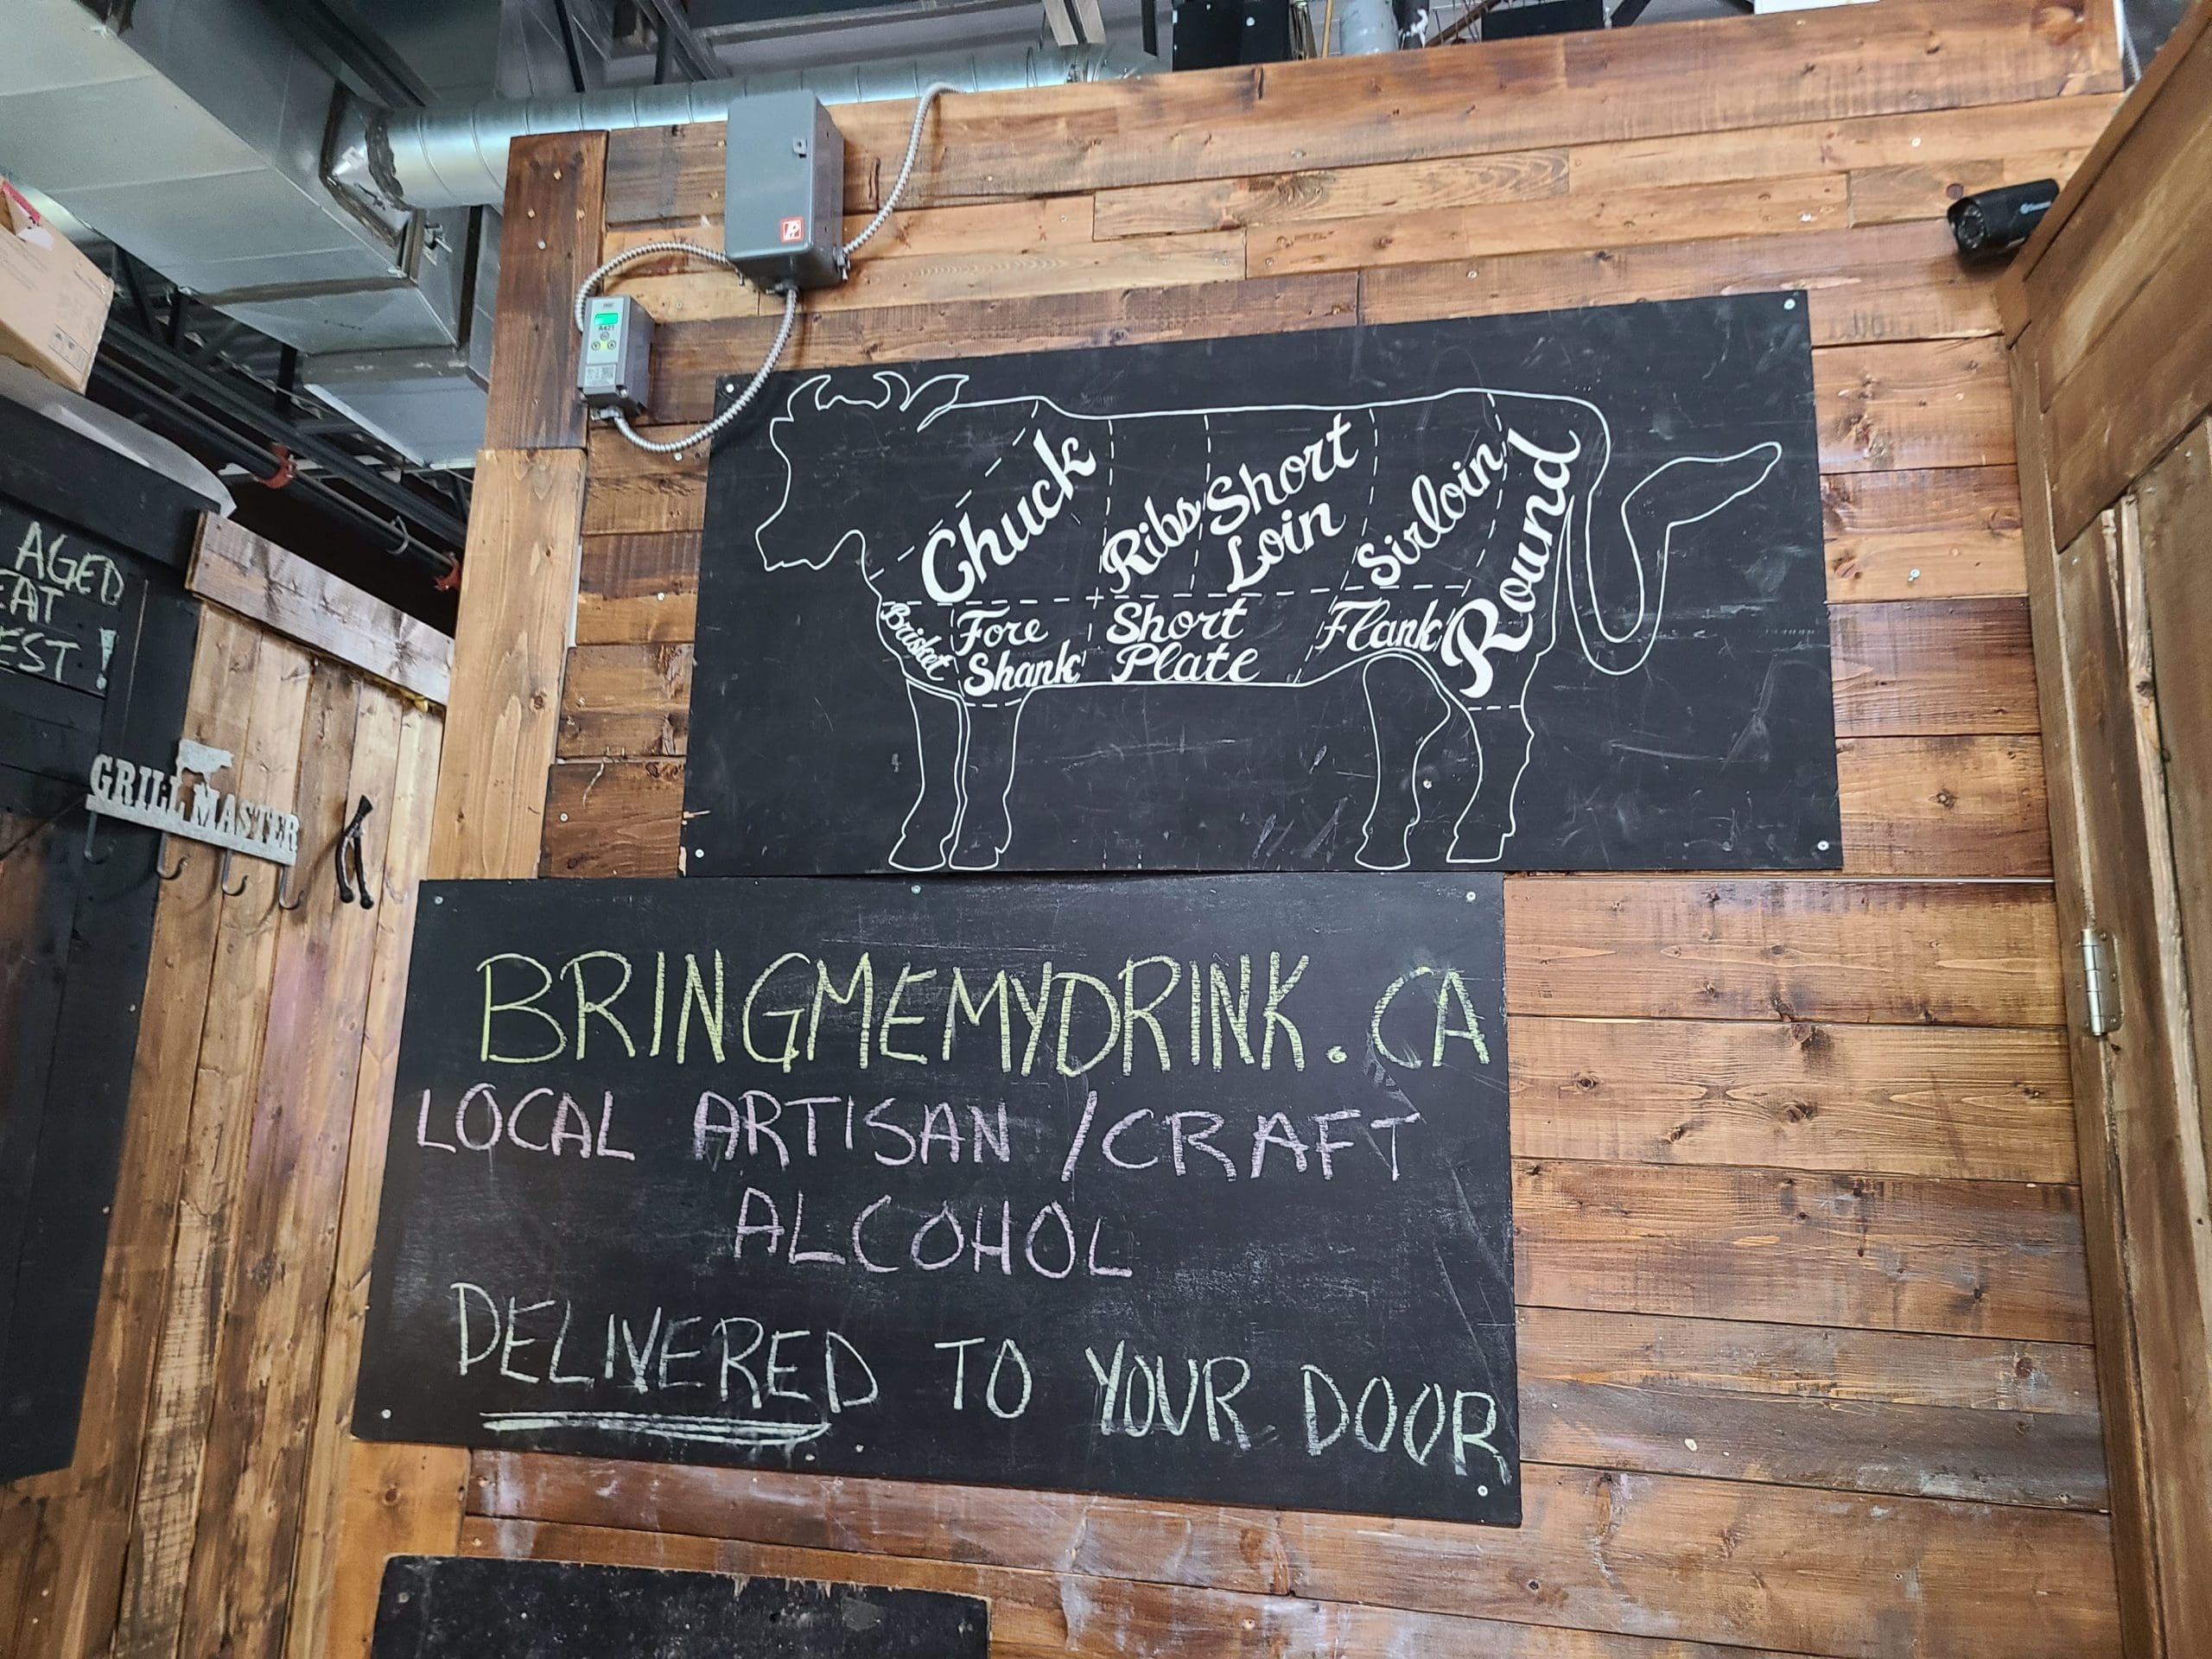 AGED
EST!
GRILL MASTER
A421
Chuck
Ribs
Short
Loin
Sirloin
Round
Brisket
Fore
Shank
Short
Plate
Flank
BRINGMEMYDRINK.CA
LOCAL ARTISAN /CRAFT
ALCOHOL
DELIVERED TO YOUR DOOR